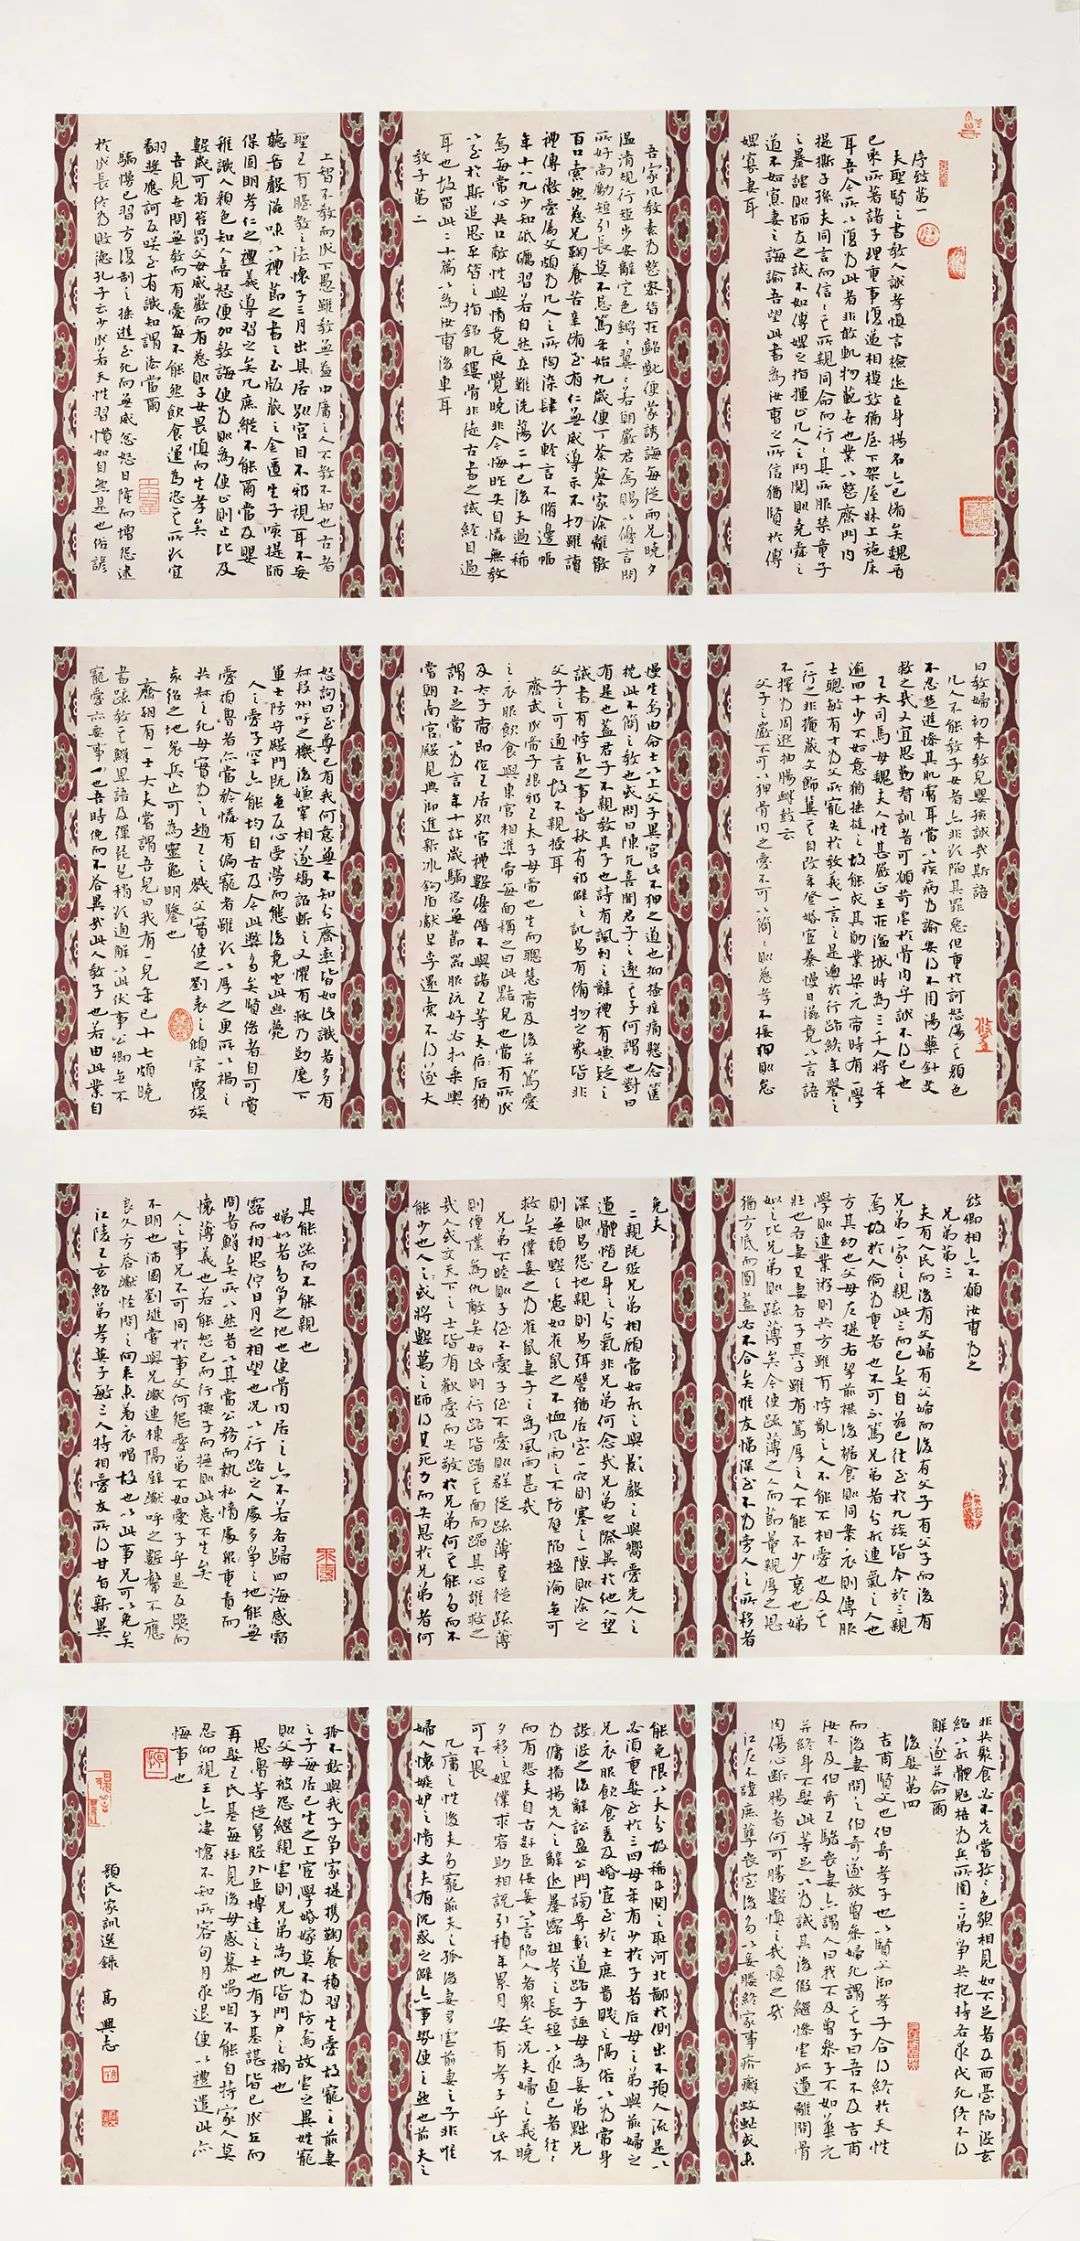 序致第一
夫聖賢之書教人誠孝慎言檢迹立身揚名亦已備矣魏晉
已來所著諸子理重事復遞相模敩猶屋下架屋牀上施床
耳吾今所以復為此者非敢軌物範世也業以整齊門內
提撕子孫夫同言而信信其所親同命而行行其所服禁童子
之暴謔則師友之誡不如傅婢之指揮止凡人之鬥鬩則堯舜之
道不如寡妻之誨諭吾望此書為汝曹之所信猶賢於傅
婢寡妻耳
吾家風教素為整密昔在齠齔便蒙誘誨每從兩兄曉夕
溫凊規行矩步安辭定色鏘鏘翼翼若朝嚴君焉賜以優言問
所好尚勵短引長莫不懇篤年始九歲便丁荼蓼家塗離散
百口索然慈兄鞠養苦辛備至有仁無威導示不切雖讀
禮傳微愛屬文頗為凡人之所陶染肆欲輕言不脩邊幅
年十八九少知砥礪習若自然卒難洗蕩二十已後大過稀
焉每常心共口敵性與情競夜覺曉非今悔昨失自憐無教
以至於斯追思平昔之指銘肌鏤骨非徒古書之誡經目過
耳也故留此二十篇以為汝曹後車耳
教子第二
上智不教而成下愚雖教無益中庸之人不教不知也古者
聖王有胎教之法懷子三月出其居別宮目不邪視耳不妄
聽音聲滋味以禮節之書之玉版藏之金匱生子咳提師
保固明孝仁之禮義導習之矣凡庶縱不能爾當及嬰
稚識人顏色知人喜怒便加教誨使為則為使止則止比及
數歲可省笞罰父母威嚴而有慈則子女畏慎而生孝矣
吾見世間無教而有愛每不能然飲食運為恣其所欲宜
翻獎應訶反笑至有識知謂法當爾
驕慢已習方復制之捶撻至死而無威忿怒日隆而增怨逮
於成長終為敗德孔子云少成若天性習慣如自然是也俗諺
曰教婦初來教兒嬰孩誠哉斯語
凡人不能教子女者亦非欲陷其罪惡但重於訶怒傷其顏色
不忍楚撻慘其肌膚耳當以疾病為諭安得不用湯藥針艾
救之哉又宜思勤督訓者可願苛虐於骨肉乎誠不得已也
王大司馬母魏夫人性甚嚴正王在湓城時為三千人將年
逾四十少不如意猶捶撻之故能成其勳業梁元帝時有一學
士聰敏有才為父所寵失於教義一言之是遍於行路終年譽之
一行之非掩藏文飾冀其自改年登婚宦暴慢日滋竟以言語
不擇為周逖抽腸釁鼓云
父子之嚴不可以狎骨肉之愛不可以簡簡則慈孝不接狎則怠
慢生焉由命士以上父子異宮此不狎之道也抑搔痒痛懸衾篋
枕此不簡之教也或問曰陳亢喜聞君子之遠其子何謂也對曰
有是也蓋君子不親教其子也詩有諷刺之辭禮有嫌疑之
誡書有悖亂之事春秋有邪僻之譏易有備物之象皆非
父子之可通言故不親授耳
齊武成帝子琅邪王太子母弟也生而聰慧帝及后并篤愛
之衣服飲食與東宮相準帝每面稱之曰此黠兒也當有所成
及太子即位王居別宮禮數優僭不與諸王等太后猶
謂不足常以為言年十許歲驕恣無節器服玩好必擬乘輿
常朝南殿見典御進新冰鉤盾獻早李還索不得遂大
怒訽曰至尊已有我何意無不知分齊率皆如此識者多有
叔段州吁之譏後嫌宰相遂矯詔斬之又懼有救乃勒麾下
軍士防守殿門既無反心受勞而罷後竟坐此幽薨
人之愛子罕亦能均自古及今此弊多矣賢俊者自可賞
愛頑魯者亦當矜憐有偏寵者雖欲以厚之更所以禍之
共叔之死母實為之趙王之戮父實使之劉表之傾宗覆族
袁紹之地裂兵亡可為靈龜明鑒也
齊朝有一士大夫嘗謂吾曰我有一兒年已十七頗曉
書疏教其鮮卑語及彈琵琶稍欲通解以此伏事公卿無不
寵愛亦要事也吾時俛而不答異哉此人教子也若由此業自
致卿相亦不願汝曹為之
兄弟第三
夫有人民而後有夫婦有夫婦而後有父子有父子而後有
兄弟一家之親此三而已矣自茲已往至於九族皆本於三親
焉故於人倫為重者也不可不篤兄弟者分形連氣之人也
方其幼也父母左提右挈前襟後裾食則同案衣則傳服
學則連業游則共方雖有悖亂之人不能不相愛也及其
壯也各妻其妻各子其子雖有篤厚之人不能不少衰也娣
姒之比兄弟則疏薄矣今使疏薄之人而節量親厚之恩
猶方底而圓蓋必不合矣惟友悌深至不為旁人之所移者
免夫
二親既歿兄弟相顧當如形之與影聲之與響愛先人之
遺體惜己身之分氣非兄弟何念哉兄弟之際異於他人望
深則易怨地親則易弭譬猶居室一穴則塞之一隙則塗之
則無頹毀之慮如雀鼠之不恤風雨之不防壁陷楹淪無可
救矣僕妾之為雀鼠妻子之為風雨甚哉
兄弟不睦則子侄不愛子侄不愛則群從疏薄群從疏薄
則僮僕為仇敵矣如此則行路皆踖其面而蹈其心誰救之
哉人或交天下之士皆有歡愛而失敬於兄者何其能多而不
能少也人或將數萬之師得其死力而失恩於弟者何
其能疏而不能親也
娣姒者多爭之地也使骨肉居之亦不若各歸四海感霜
露而相思佇日月之相望也況以行路之人處多爭之地能無
間者鮮矣所以然者以其當公務而執私情處重責而
懷薄義也若能恕己而行換子而撫則此患不生矣
人之事兄不可同於事父何怨愛弟不如愛子乎是反照而
不明也沛國劉璡嘗與兄瓛連棟隔壁瓛呼之數聲不應
良久方答瓛怪問之向來未著衣帽故也以此事兄可以免矣
江陵王玄紹弟孝英子敏三人特相愛友所得甘旨新異
非共聚食必不先嘗孜孜色貌相見如不足者及西臺陷沒玄
紹以形體魁梧為兵所圍二弟爭共抱持各求代死終不得
解遂并命爾
後娶第四
吉甫賢父也伯奇孝子也以賢父御孝子合得終於天性
而後妻間之伯奇遂放曾參婦死謂其子曰吾不及吉甫
汝不及伯奇王駿喪妻亦謂人曰我不及曾參子不如華元
并終身不娶此等足以為誡其後假繼慘虐孤遺離間骨
肉傷心斷腸者何可勝數慎之哉慎之哉
江左不諱庶孽喪室後多以妾媵終家事疥癬蚊虻或未
能免限以大分故稀鬥鬩之恥河北鄙於側出不預人流是以
必須重娶至於三四母年有少於子者後母之弟與前婦之
兄衣服飲食爰及婚宦至於士庶貴賤之隔俗以為常身
沒之後辭訟盈公門謗辱彰道路子誣母為妾弟黜兄
為傭播揚先人之辭迹暴露祖考之長短以求直己者往往
而有悲夫自古奸臣佞妾以一言陷人者眾矣況夫婦之義曉
夕移之婢僕求容助相說引積年累月安有孝子乎此不
可不畏
凡庸之性後夫多寵前夫之孤後妻多虐前妻之子非唯
婦人懷嫉妒之情丈夫有沉惑之僻亦事勢使之然也前夫之
孤不敢與我子爭家提攜鞠養積習生愛故寵之前妻
之子每居己生之上宦學婚嫁莫不為防焉故虐之異姓寵
則父母被怨繼親虐則兄弟為仇皆門戶之禍也
思魯等從舅殷外臣博達之士也有子基諶皆已成立而
再娶王氏基每拜見後母感慕嗚咽不能自持家人莫
忍仰視王亦淒愴不知所容旬月求退便以禮遣此亦
悔事也
顏氏家訓選錄 高興志